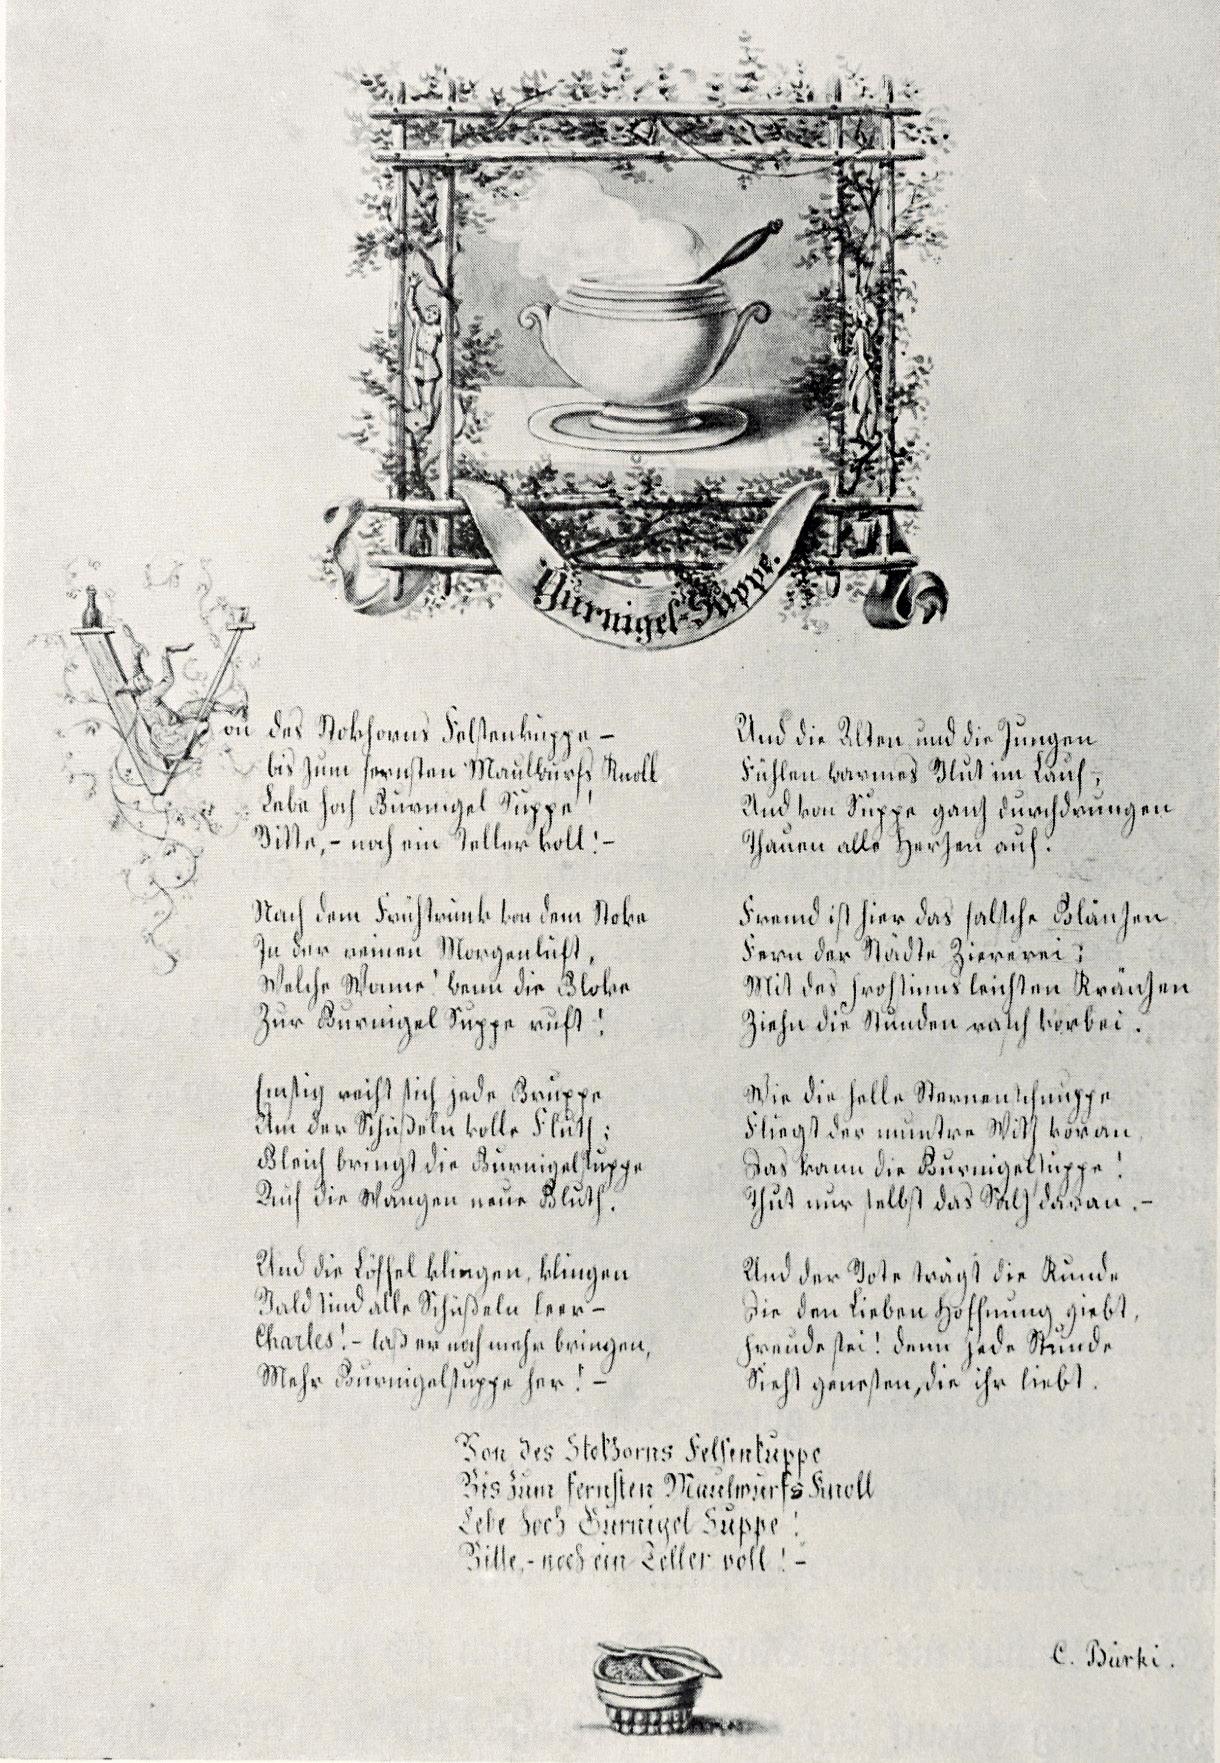 Gurnigel-Suppe.
Von des Stokhorns Felsenkuppe –
bis zum fernsten Maulwurfs Knoll
Lebe hoch Gurnigel Suppe!
Bitte, – noch ein Teller voll! –
Nach dem Frühtrunk von dem Stoke
In der reinen Morgenluft,
Welche Wonne! wenn die Gloke
Zur Gurnigel Suppe ruft!
Emsig reiht sich jede Gruppe
Um der Schüßeln volle Fluth;
Gleich bringt die Gurnigelsuppe
Auf die Wangen neue Gluth.
Und die Löffel klingen, klingen
Bald sind alle Schüßeln leer –
Charles! – laß er noch mehr bringen,
Mehr Gurnigelsuppe her! –
Und die Alten und die Jungen
Fühlen warmes Blut im Lauf,
Und von Suppe ganz durchdrungen
Thauen alle Herzen auf.
Fremd ist hier das falsche Glänzen
Fern der Städte Ziererei;
Mit des Frohsinns leichten Kränzen
Ziehn die Stunden rasch vorbei.
Wie die helle Sternenschnuppe
Fliegt der muntre Witz voran,
Das kann die Gurnigelsuppe!
Thut nur selbst das Salz daran. –
Und der Bote trägt die Kunde
Die den Lieben Hoffnung giebt,
Freude sei! denn jede Stunde
Sieht genesen, die ihr liebt.
Von des Stokhorns Felsenkuppe
Bis zum fernsten Maulwurfs Knoll
Lebe hoch Gurnigel Suppe!
Bitte, – noch ein Teller voll! –
C. Bürki.